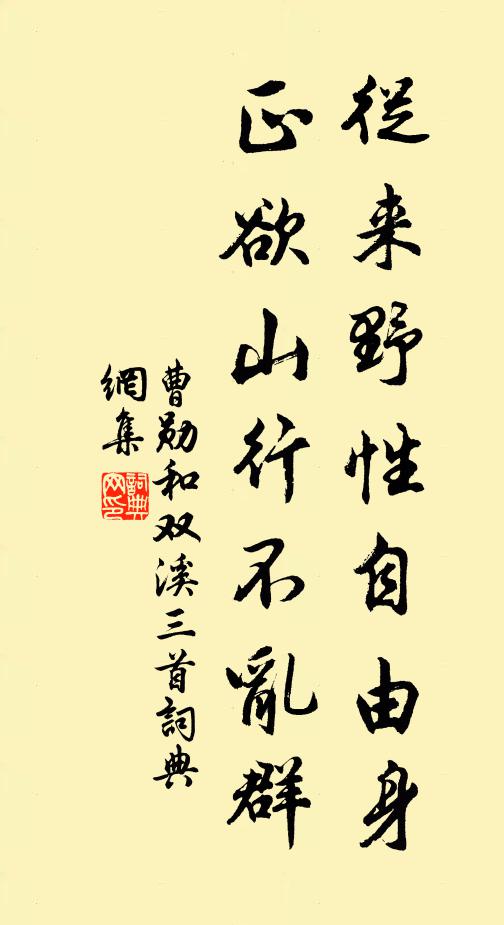 從来野性自由身
正欲山行不亂群
曹勛和双溪三首詞典
網集
詞典
网印